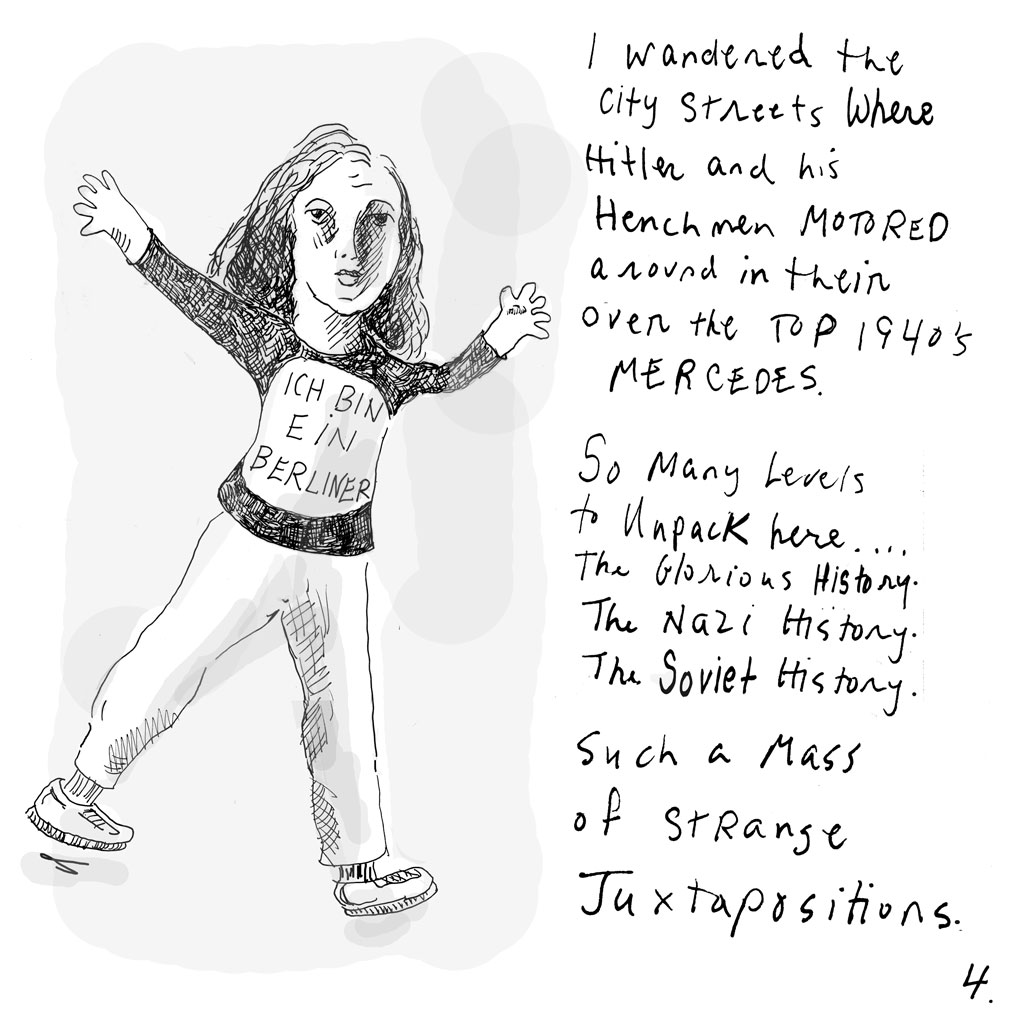 I wandered the
city streets Where
Hitler and his
Henchmen MOTORED
around in their
over the TOP 1940's
MERCEDES.
So Many Levels
to Unpack here....
The Glorious History.
The Nazi History.
The Soviet History.
Such a Mass
of STRange
Juxtapositions.
ICH BIN
EIN
BERLINER
4.